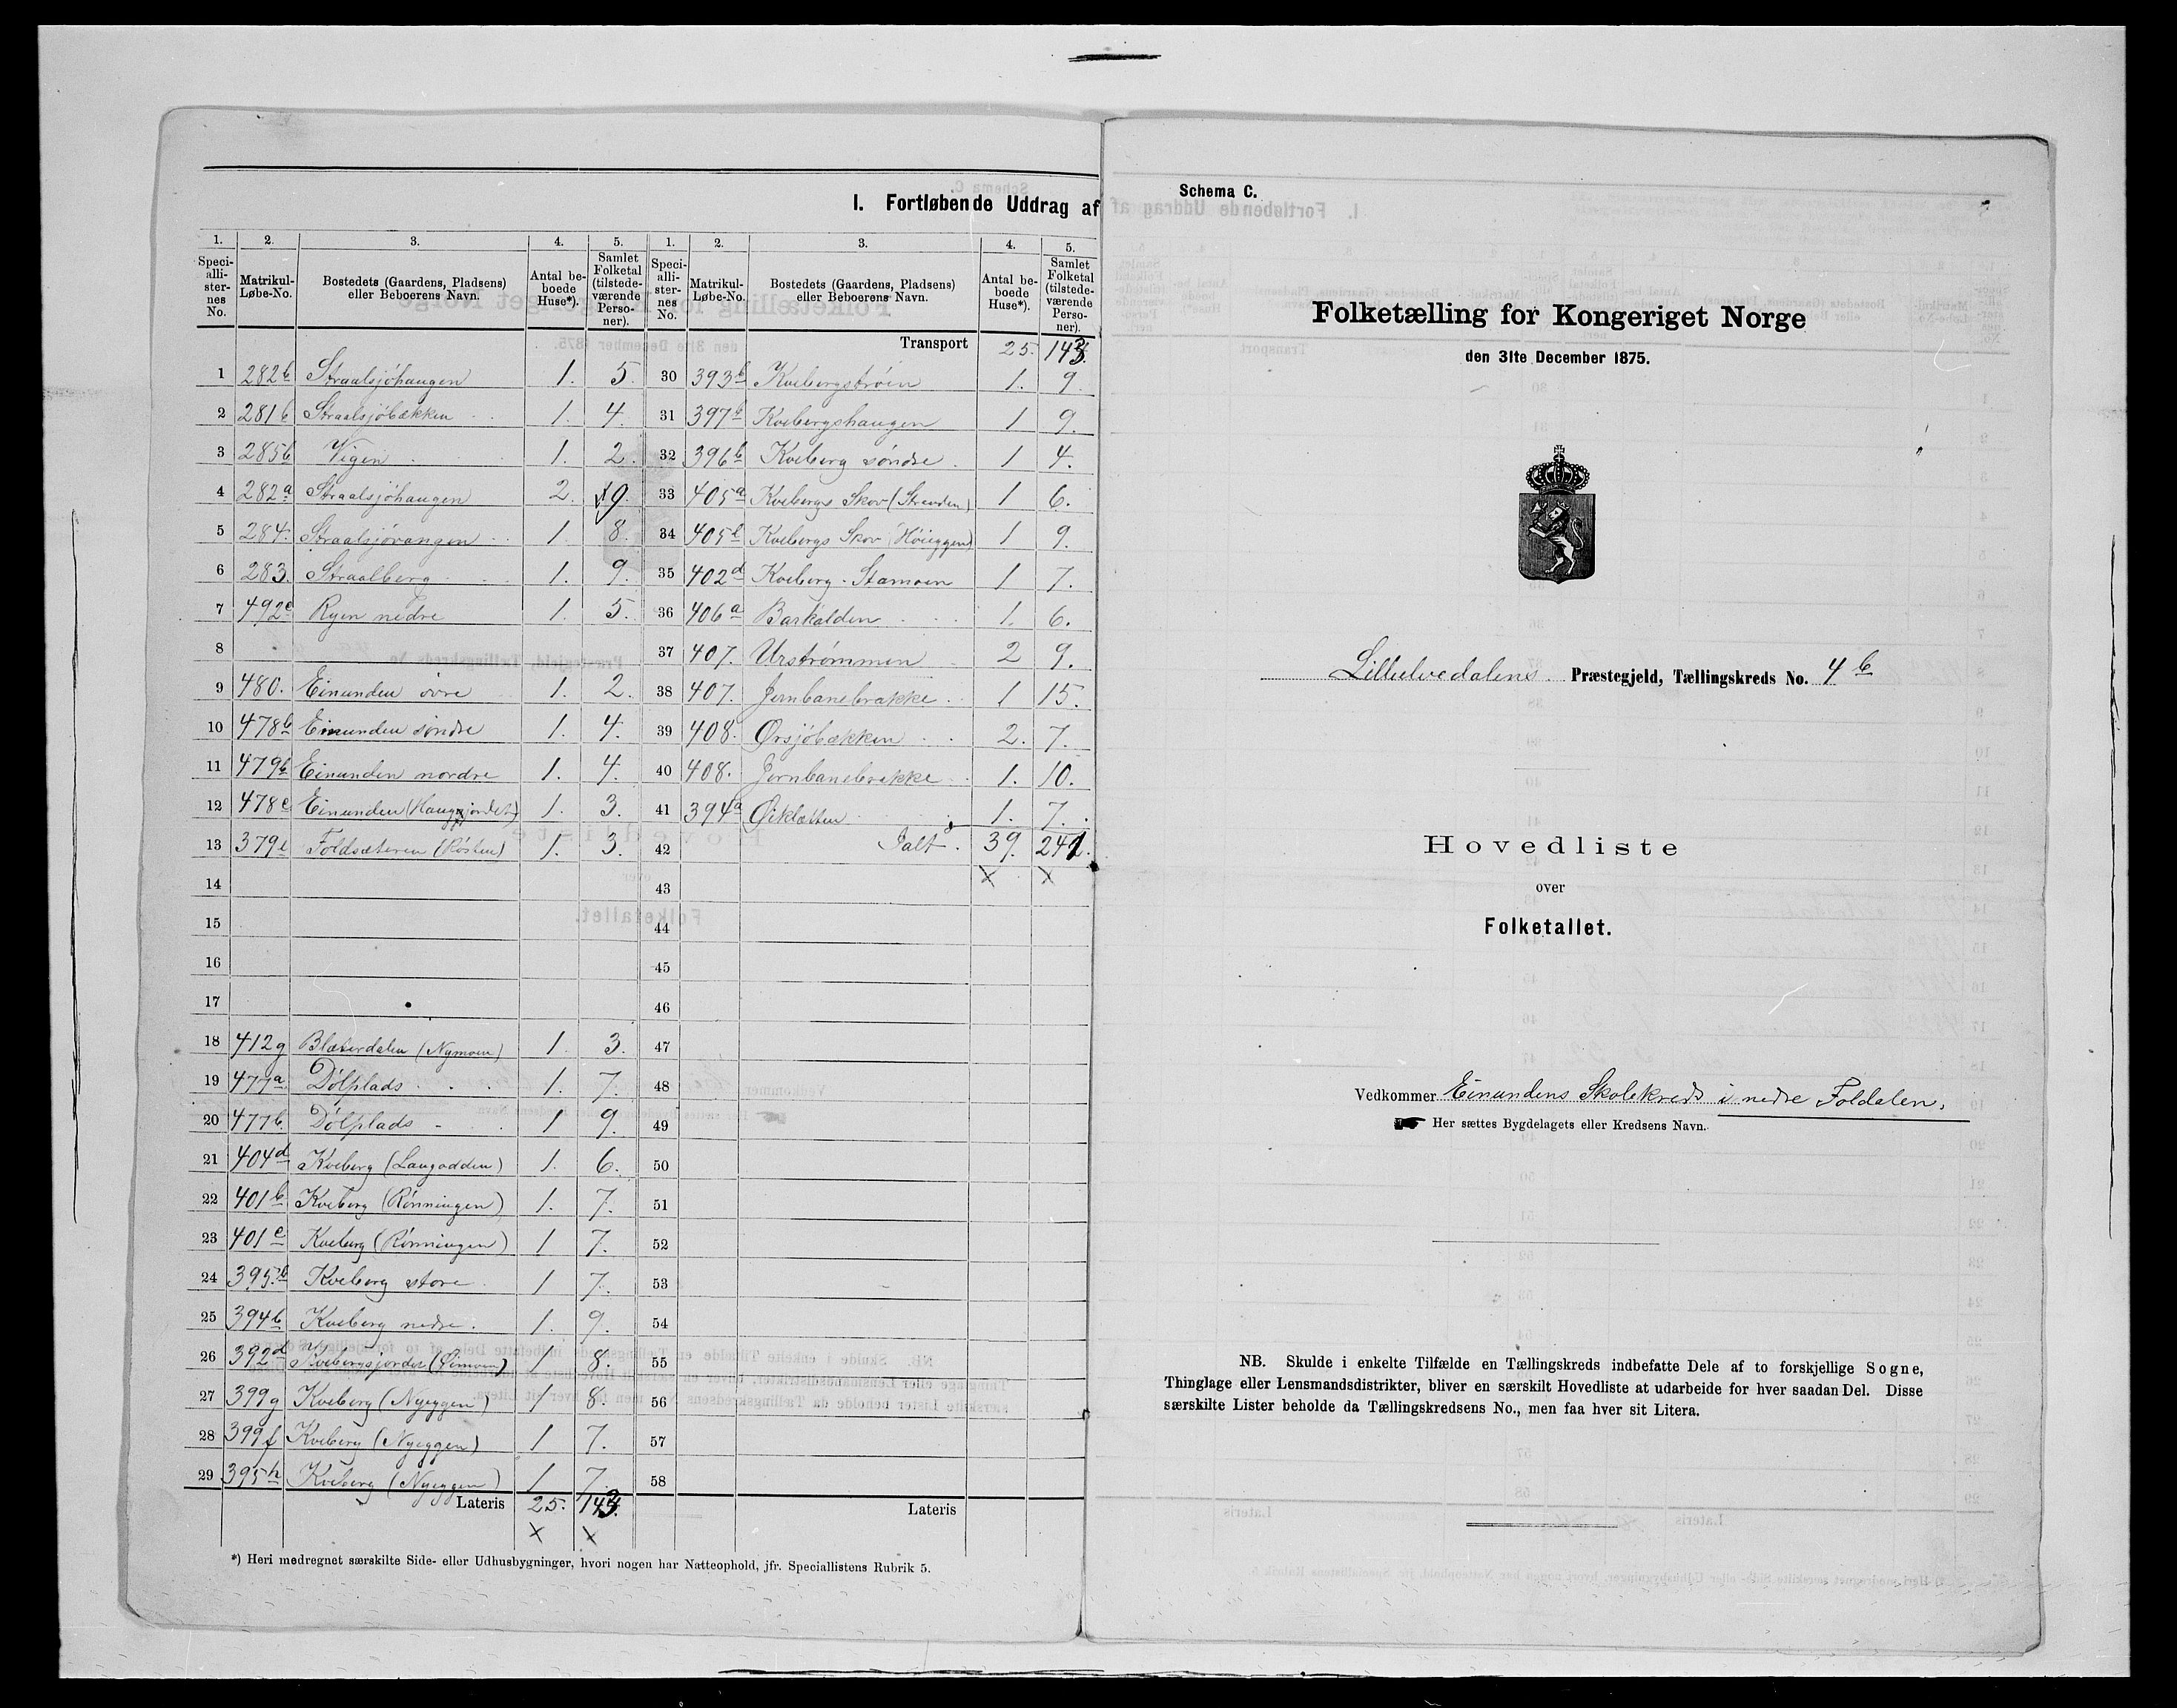 I. Fortløbende Uddrag af
1. 2. 3. 4. 5. 1. 2. 3. 4. 5.
Speciallisternes No. Matrikul-Løbe-No. Bostedets (Gaardens, Pladsens) eller Beboerens Navn. Antal beboede Huse*). Samlet Folketal (tilstedeværende Personer). Speciallisternes No. Matrikul-Løbe-No. Bostedets (Gaardens, Pladsens) eller Beboerens Navn. Antal beboede Huse*). Samlet Folketal (tilstedeværende Personer).
Transport 25. 143.
1 282b Straalsjöhaugen 1. 5. 30 393b Kvebergstrøen 1. 9.
2 281b Straalsjöbækken 1. 4. 31 397b Kvebergshaugen 1 9.
3 285b Vigen 1. 2. 32 396b Kveberg söndre 1 4.
4 282a Straalsjöhaugen 2. 9. 33 405a Kvebergs Skov (Stranden) 1 6.
5 284. Straalsjøvangen 1. 8. 34 405b Kvebergs Skov (Höieggen) 1 9.
6 283. Straalberg 1. 9. 35 402d Kveberg-Stamoen 1 7.
7 492c Ryen nedre 1. 5. 36 406a Barkalden 1. 6.
8 37 407. Urströmmen 2 9.
9 480. Einunden övre 1. 2. 38 407. Jernbanebrakke 1 15.
10 478b Einunden söndre 1. 4. 39 408. Ørsjöbækken 2. 7.
11 479b Einunden nordre 1. 4. 40 408. Jernbanebrakke 1. 10.
12 478c Einunden (Haugjordet) 1. 3. 41 394a Øiklætten 1. 7.
13 379e Foldsæteren (Rösten) 1. 3. 42 Ialt. 39. 241.
14 43
15 44
16 45
17 46
18 412g Blæsterdalen (Nymoen) 1. 3. 47
19 477a Dölplads 1. 7. 48
20 477b. Dölplads 1 9. 49
21 404d Kveberg (Langodden) 1. 6. 50
22 401b Kveberg (Rönningen) 1. 7. 51
23 401c Kveberg (Rönningen) 1 7. 52
24 395.b Kveberg store 1 7. 53
25 394b Kveberg nedre. 1. 9. 54
26 392d Kvebergsjordet (Öimoen) 1 8. 55
27 399g Kveberg (Nyeggen) 1 8. 56
28 399f Kveberg (Nyeggen) 1 7. 57
29 395h Kveberg (Nyeggen) 1 7. 58
Lateris 25. 143. Lateris
*) Heri medregnet særskilte Side- eller Udhusbygninger, hvori nogen har Natteophold, jfr. Speciallistens Rubrik 5.
Schema C.
Folketælling for Kongeriget Norge
den 31te December 1875.
Lilleelvedalens Præstegjeld, Tællingskreds No. 4b
Hovedliste
over
Folketallet.
Vedkommer Einundens Skolekreds i nedre Foldalen.
Her sættes Bygdelagets eller Kredsens Navn.
NB. Skulde i enkelte Tilfælde en Tællingskreds indbefatte Dele af to forskjellige Sogne,
Thinglage eller Lensmandsdistrikter, bliver en særskilt Hovedliste at udarbeide for hver saadan Del. Disse
særskilte Lister beholde da Tællingskredsens No., men faa hver sit Litera.